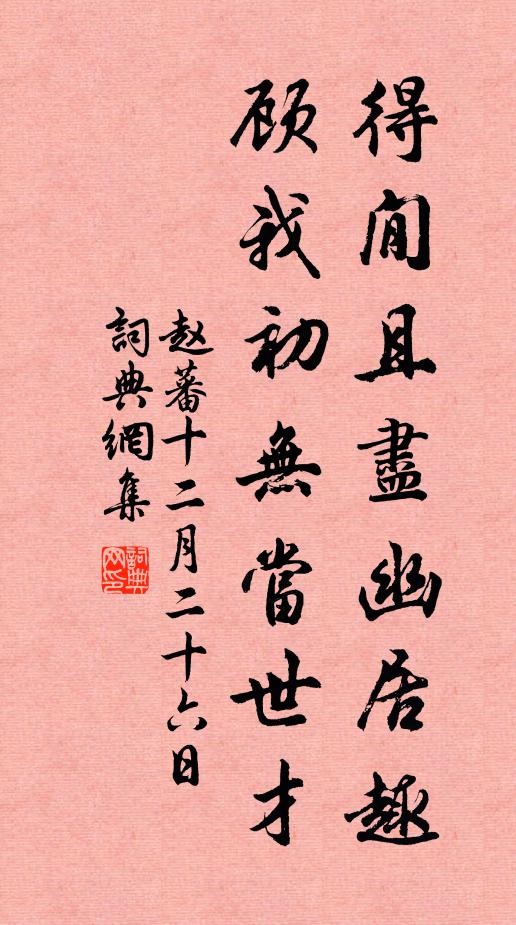 得閒且盡幽居趣
顧我初無當世才
赵蕃十二月二十六日
詞典網集
詞典网印